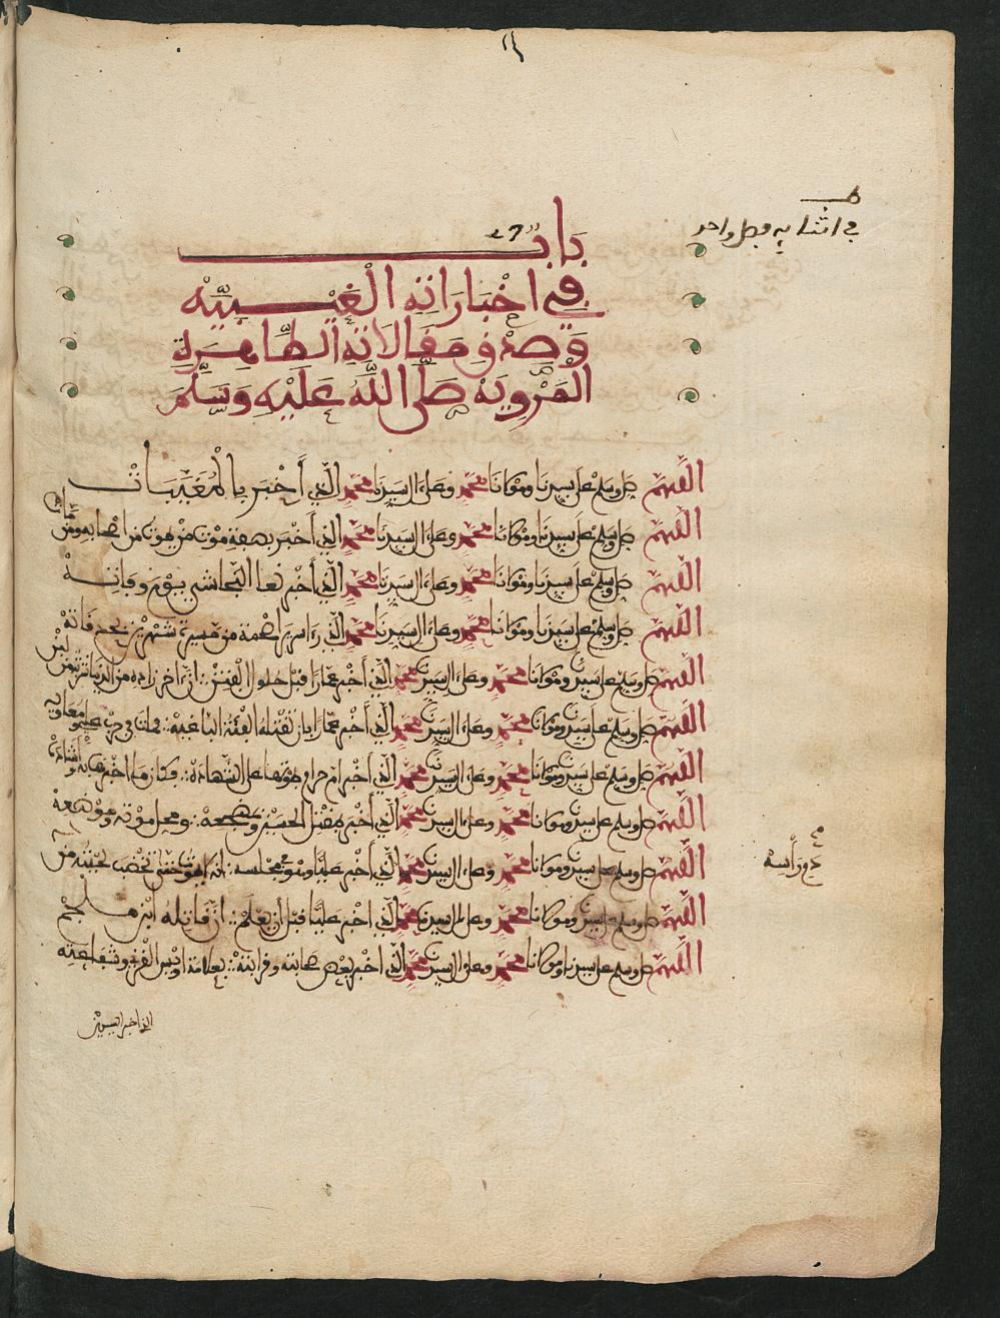 في اثنا يه فصل واحد
باب
في اخْبَارَاتِهِ الْغَيْبِيَّه
وَصِدْقِ مَقَالَاتِهِ الطَّاهِرَةِ
الْمَرْوِيَةْ صَلَّى اللَّهُ عَلَيْهِ وَسَلَّمَ
اللَّهُمَّ صل وسلم على سيدنا ومولانا محمد وعلى ال سيدنا محمد الذي أَخْبَر بالْمُغَيَّبَاتْ
اللَّهُمَّ صل وسلم على سيدنا ومولانا محمد وعلى ال سيدنا محمد الذي أخبر بصفة موت من يموت من اصحابه ومن
اللَّهُمَّ صل وسلم على سيدنا ومولانا محمد وعلى ال سيدنا محمد الذي أخبر بنعا النجاشي بيوم وفاته
اللَّهُمَّ صل وسلم على سيدنا ومولانا محمد وعلى ال سيدنا محمد الذي من مسيرة شهرين
اللَّهُمَّ صل وسلم على سيدنا ومولانا محمد وعلى ال سيدنا محمد الذي أخبر عمارا قبل حلول الفتن ان اخر زاده من الدنيا شربة من لبن
اللَّهُمَّ صل وسلم على سيدنا ومولانا محمد وعلى ال سيدنا محمد الذي أخبر عمارا بان تقتله الفئة الباغية فمات في حرب علي ومعاوية
اللَّهُمَّ صل وسلم على سيدنا ومولانا محمد وعلى ال سيدنا محمد الذي أخبر ام حرام بموتها على الشهادة فكان ما اخبر به
اللَّهُمَّ صل وسلم على سيدنا ومولانا محمد وعلى ال سيدنا محمد الذي أخبر بمقتل الحسين ومضجعه ومحل موته وموضعه
اللَّهُمَّ صل وسلم على سيدنا ومولانا محمد وعلى ال سيدنا محمد الذي أخبر عليا وهو في مجلسه انه لا يموت حتى تخضب لحيته من
دم رأسه
اللَّهُمَّ صل وسلم على سيدنا ومولانا محمد وعلى ال سيدنا محمد الذي أخبر عليا قبل ان يعلم ان قاتله ابن ملجم
اللَّهُمَّ صل وسلم على سيدنا ومولانا محمد وعلى ال سيدنا محمد الذي اخبر بعض صحابته وقرابته بعلامة اويس القرني وشفاعته
الذي اخبر